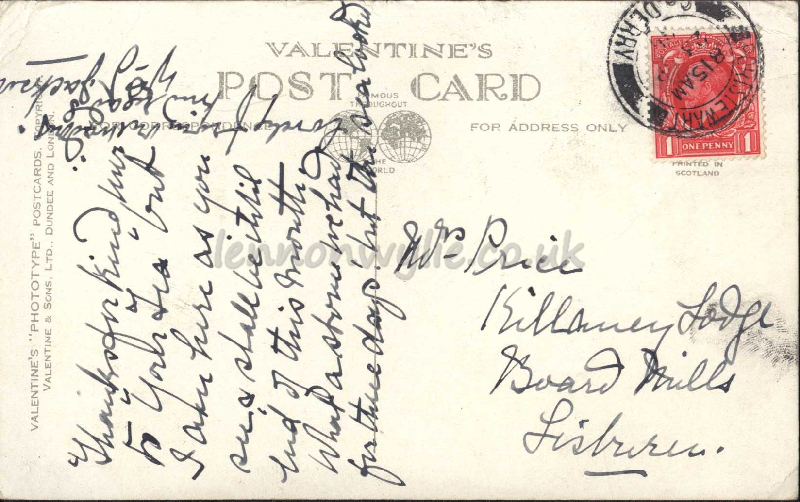 VALENTINE'S
POST CARD
FAMOUS
THROUGHOUT
THE
WORLD
FOR ADDRESS ONLY
PRINTED IN
SCOTLAND
ONE PENNY
1 1
PORTSTEWART
8 15 AM
Co DERRY
VALENTINE'S "PHOTOTYPE" POSTCARDS. COPYRIGHT
VALENTINE & SONS, LTD., DUNDEE AND LONDON.
Thanks for kind inv
to Yours Tea but
I am here as you
see & shall be until
end of this month.
What a storm we had
for three days! but this
looked
kind regards
Jackson
Mrs Price
Killaney Lodge
Board Mills
Lisburn.
lennonwylie.co.uk